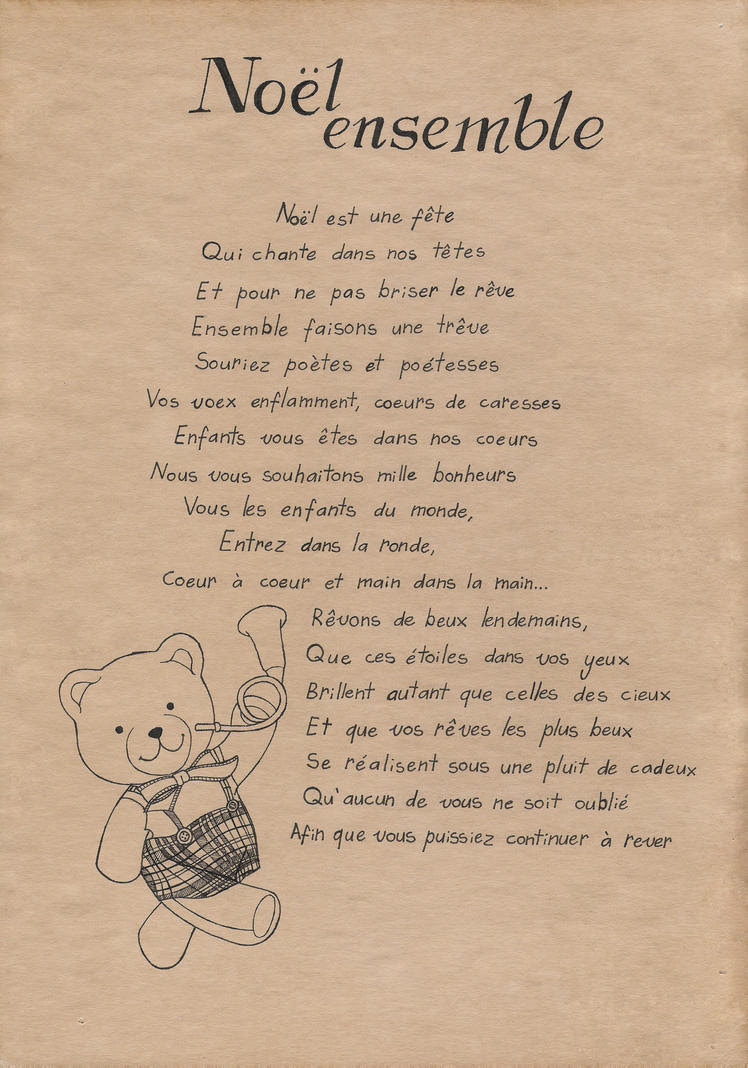 Noël
ensemble
Noël est une fête
Qui chante dans nos têtes
Et pour ne pas briser le rêve
Ensemble faisons une trêve
Souriez poètes et poétesses
Vos voex enflamment, coeurs de caresses
Enfants vous êtes dans nos coeurs
Nous vous souhaitons mille bonheurs
Vous les enfants du monde,
Entrez dans la ronde,
Coeur à coeur et main dans la main...
Rêvons de beux lendemains,
Que ces étoiles dans vos yeux
Brillent autant que celles des cieux
Et que vos rêves les plus beux
Se réalisent sous une pluit de cadeux
Qu'aucun de vous ne soit oublié
Afin que vous puissiez continuer à rever